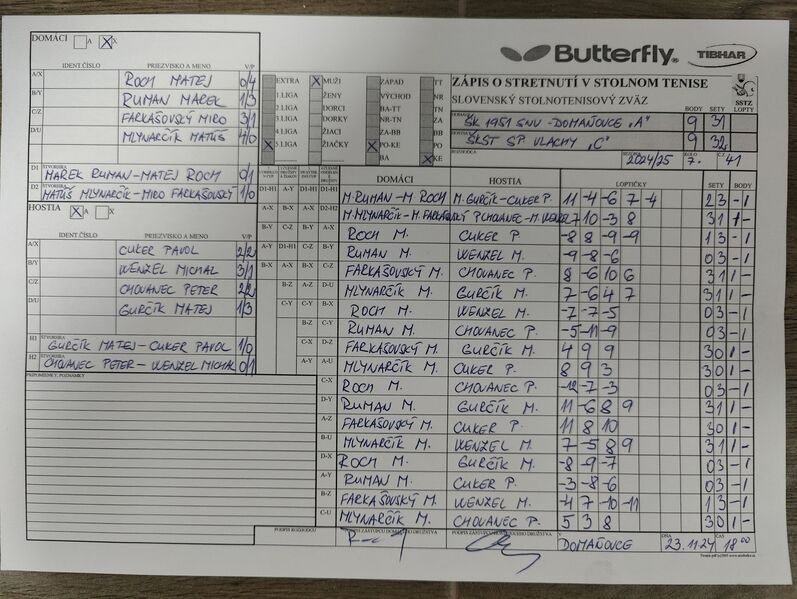 DOMÁCI A X
IDENT.ČÍSLO PRIEZVISKO A MENO V/P
A/X ROCH MATEJ 0/4
B/Y RUMAN MAREK 1/3
C/Z FARKAŠOVSKÝ MIRO 3/1
D/U MLYNARČÍK MATÚŠ 4/0
D1 ŠTVORHRA MAREK RUMAN-MATEJ ROCH 0/1
D2 ŠTVORHRA MATÚŠ MLYNARČÍK-MIRO FARKAŠOVSKÝ 1/0
HOSTIA A X
IDENT.ČÍSLO PRIEZVISKO A MENO V/P
A/X CUKER PAVOL 2/2
B/Y WENZEL MICHAL 3/1
C/Z CHOVANEC PETER 2/2
D/U GURČÍK MATEJ 1/3
H1 ŠTVORHRA GURČÍK MATEJ-CUKER PAVOL 1/0
H2 ŠTVORHRA CHOVANEC PETER-WENZEL MICHAL 0/1
PRIPOMIENKY, POZNÁMKY
Butterfly TIBHAR
EXTRA MUŽI ZÁPAD TT
1.LIGA ŽENY VÝCHOD NR
2.LIGA DORCI BA-TT TN
3.LIGA DORKY NR-TN ZA
4.LIGA ŽIACI ZA-BB BB
5.LIGA ŽIAČKY PO-KE PO
BA KE
ZÁPIS O STRETNUTÍ V STOLNOM TENISE
SLOVENSKÝ STOLNOTENISOVÝ ZVÄZ
SSTZ
BODY SETY LOPTY
DOMÁCI ŠK 1951 SNV-DOMAŇOVCE „A" 9 31
HOSTIA ŠKST SP. VLACHY „C" 9 32
ROZHODCA SEZÓNA 2024/25 KOLO 7. ČZ 41
DOMÁCI HOSTIA LOPTIČKY SETY BODY
D1-H1 A-Y D1-H1 D1-H1 M.RUMAN-M ROCH M.GURČÍK-CUKER P. 11 -4 -6 7 -4 2 3 - 1
A-X B-X A-X D2-H2 M.MLYNARČÍK-M.FARKAŠOVSKÝ P.CHOVANEC-M.WENZEL 7 10 -3 8 3 1 1 -
B-Y C-Z B-Y A-X ROCH M. CUKER P. -8 8 -9 -9 1 3 - 1
A-Y D1-H1 C-Z B-Y RUMAN M. WENZEL M. -9 -8 -6 0 3 - 1
B-X A-X B-X C-Z FARKAŠOVSKÝ M. CHOVANEC P. 8 -6 10 6 3 1 1 -
B-Z A-Z D-U MLYNARČÍK M. GURČÍK M. 7 -6 4 7 3 1 1 -
C-Y C-Y B-X ROCH M. WENZEL M. -7 -7 -5 0 3 - 1
B-Z C-Y RUMAN M. CHOVANEC P. -5 -11 -9 0 3 - 1
C-X D-Z FARKAŠOVSKÝ M. GURČÍK M. 4 9 9 3 0 1 -
A-Y A-U MLYNARČÍK M. CUKER P. 8 9 3 3 0 1 -
C-X ROCH M. CHOVANEC P. -12 -7 -3 0 3 - 1
D-Y RUMAN M. GURČÍK M. 11 -6 8 9 3 1 1 -
A-Z FARKAŠOVSKÝ M. CUKER P. 11 8 10 3 0 1 -
B-U MLYNARČÍK M. WENZEL M. 7 -5 8 9 3 1 1 -
D-X ROCH M. GURČÍK M. -8 -9 -7 0 3 - 1
A-Y RUMAN M. CUKER P -3 -8 -6 0 3 - 1
B-Z FARKAŠOVSKÝ M. WENZEL M. -4 7 -10 -11 1 3 - 1
C-U MLYNARČÍK M. CHOVANEC P. 5 3 8 3 0 1 -
PODPIS ROZHODCU PODPIS ZÁSTUPCU DOMÁCEHO DRUŽSTVA PODPIS ZÁSTUPCU HOSŤUJÚCEHO DRUŽSTVA V DOMAŇOVCE DŇA 23.11.24 ČAS 18 00